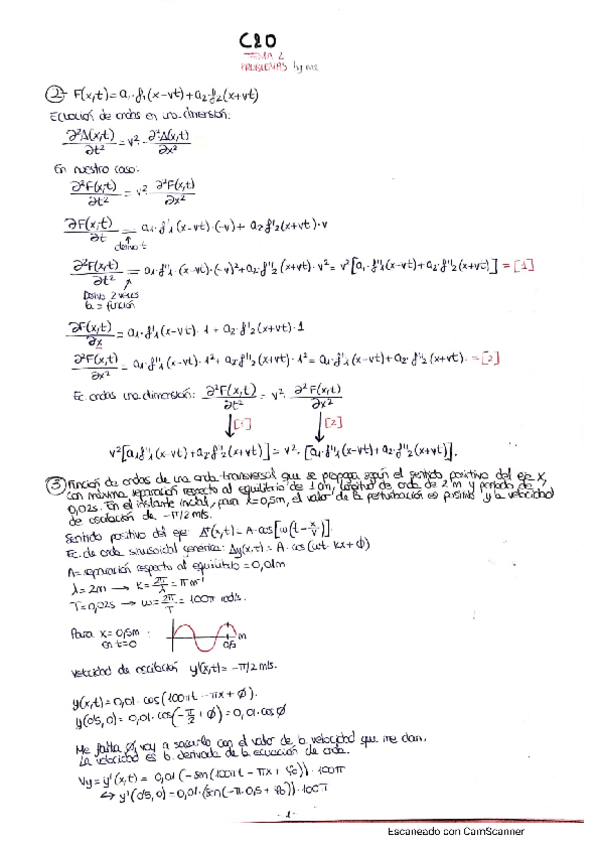 C20
TEMA 2
PROBLEMAS by me
2- F(x,t)=a₁·f₁(x-vt)+a₂·f₂(x+vt)
Ecuación de ondas en una dimensión:
∂²A(x,t)/∂t² = v²· ∂²A(x,t)/∂x²
En nuestro caso:
∂²F(x,t)/∂t² = v²· ∂²F(x,t)/∂x²
∂F(x,t)/∂t = a₁·f'₁(x-vt)·(-v)+ a₂·f'₂(x+vt)·v
derivo t
∂²F(x,t)/∂t² = a₁·f''₁·(x-vt)·(-v)²+a₂·f''₂(x+vt)·v² = v²[a₁·f''₁(x-vt)+a₂·f''₂(x+vt)] = [1]
Derivo 2 veces
la función
∂F(x,t)/∂x = a₁·f'₁(x-vt)·1 + a₂·f'₂(x+vt)·1
∂²F(x,t)/∂x² = a₁·f''₁(x-vt)·1²+ a₂f''₂(x+vt)·1² = a₁·f''₁(x-vt)+a₂·f''₂(x+vt). = [2]
Ec. ondas una dimensión: ∂²F(x,t)/∂t² = v²· ∂²F(x,t)/∂x²
[1] [2]
v²[a₁f''₁(x-vt)+a₂·f''₂(x+vt)] = v²·[a₁·f''₁(x-vt)+a₂·f''₂(x+vt)].
3 Función de ondas de una onda transversal que se propaga según el sentido positivo del eje x,
con máxima separación respecto al equilibrio de 1cm, longitud de onda de 2m y periodo de
0,02s. En el instante inicial, para x=0,5m, el valor de la perturbación es positivo y la velocidad
de oscilación de -π/2 m/s.
Sentido positivo del eje: A⁺(x,t)=A·cos[w(t-x/v)].
Ec. de onda sinusoidal generica: Ay(x,t)= A·cos(wt-kx+ϕ)
A= separación respecto al equilibrio = 0,01m
λ=2m → k=2π/λ = π m⁻¹
T=0,02s → w=2π/T = 100π rad/s.
Para x=0,5m :
en t=0
0,5 m
Velocidad de oscilación y'(x,t)= -π/2 m/s.
y(x,t)=0,01·cos(100πt-πx+ϕ).
y(0'5,0)= 0,01·cos(-π/2+ϕ)=0,01·cosϕ
Me falta ϕ, voy a sacarlo con el valor de la velocidad que me dan.
La velocidad es la derivada de la ecuación de onda.
Vy=y'(x,t)= 0,01(-sen(100πt-πx+φ₀))·100π
↳ y'(0'5,0)=0,01·(sen(-π·0,5+φ₀))·100π
-1-
Escaneado con CamScanner